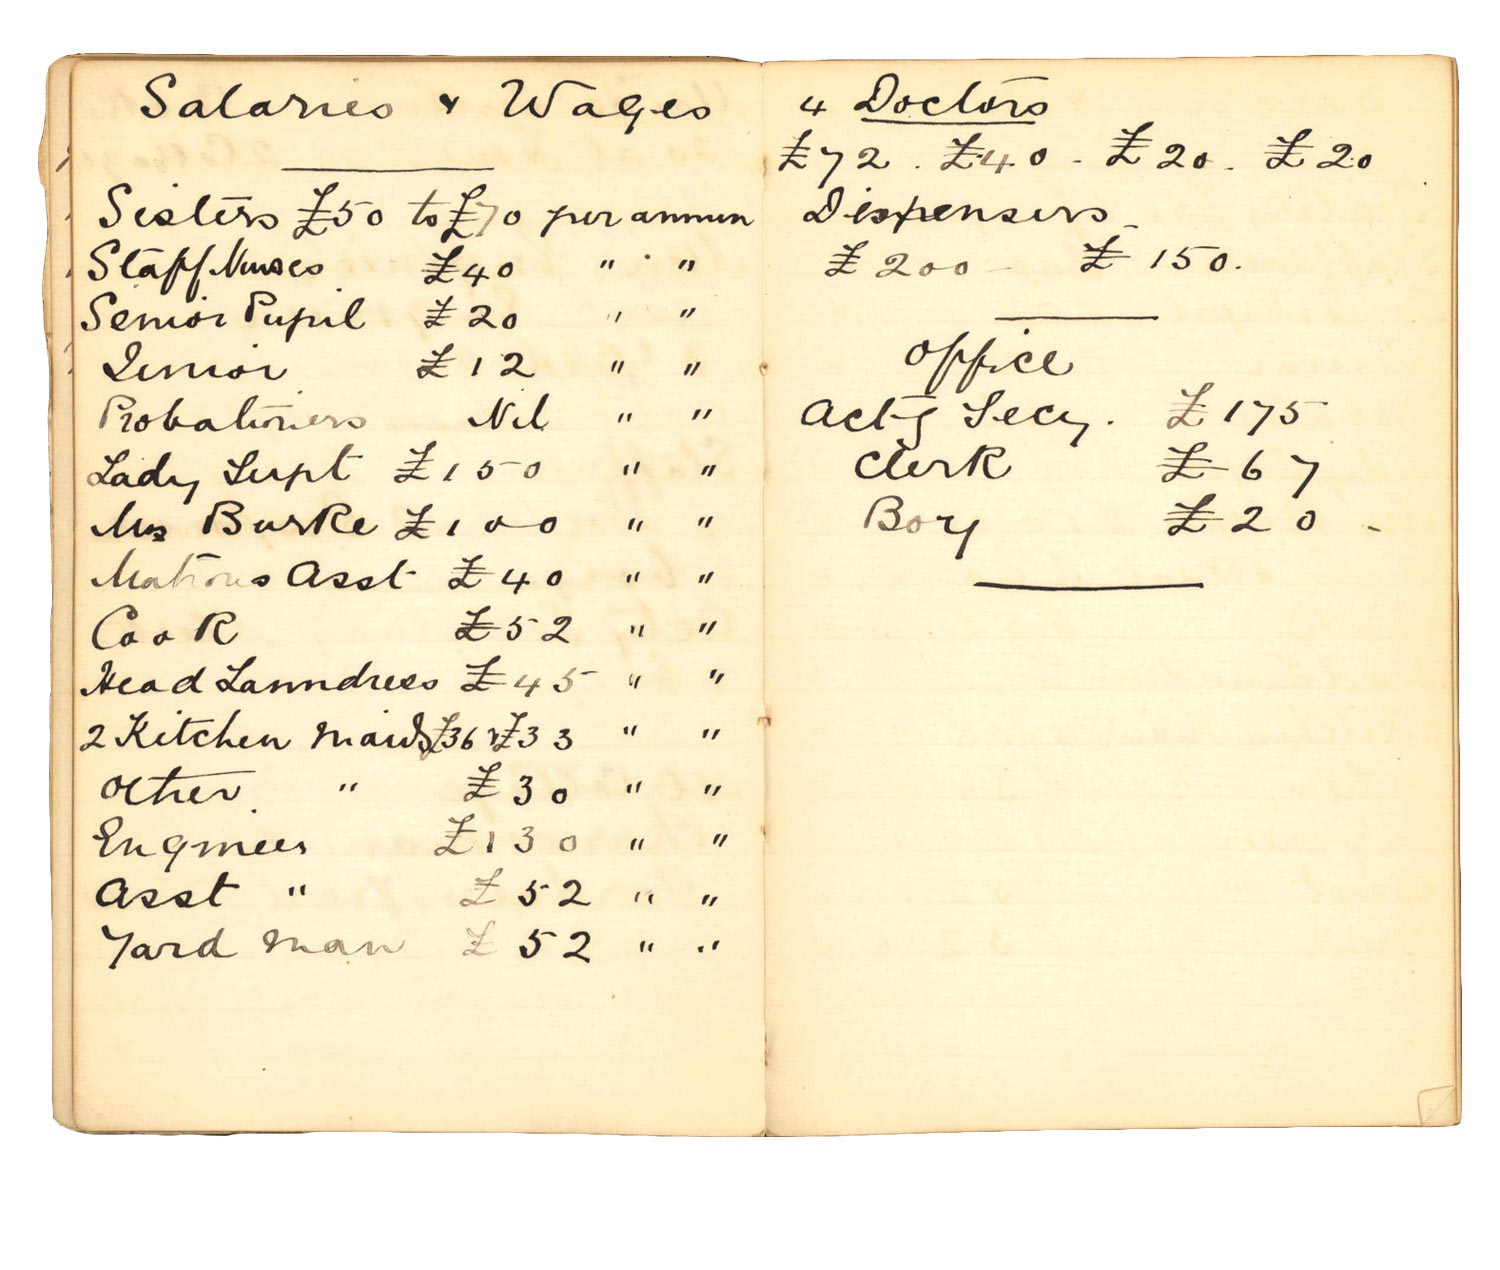 Salaries & Wages
Sisters £50 to £70 per annum
Staff Nurses £40 " "
Senior Pupil £20 " "
Junior £12 " "
Probationers Nil " "
Lady Supt £150 " "
Mrs Burke £100 " "
Matrons Asst £40 " "
Cook £52 " "
Head Laundress £45 " "
2 Kitchen Maids £36 & £33 " "
Other " £30 " "
Engineer £130 " "
Asst " £52 " "
Yard Man £52 " "
4 Doctors
£72 . £40 - £20 . £20
Dispensers
£200 - £150.
Office
Act'g Secy. £175
Clerk £67
Boy £20 -